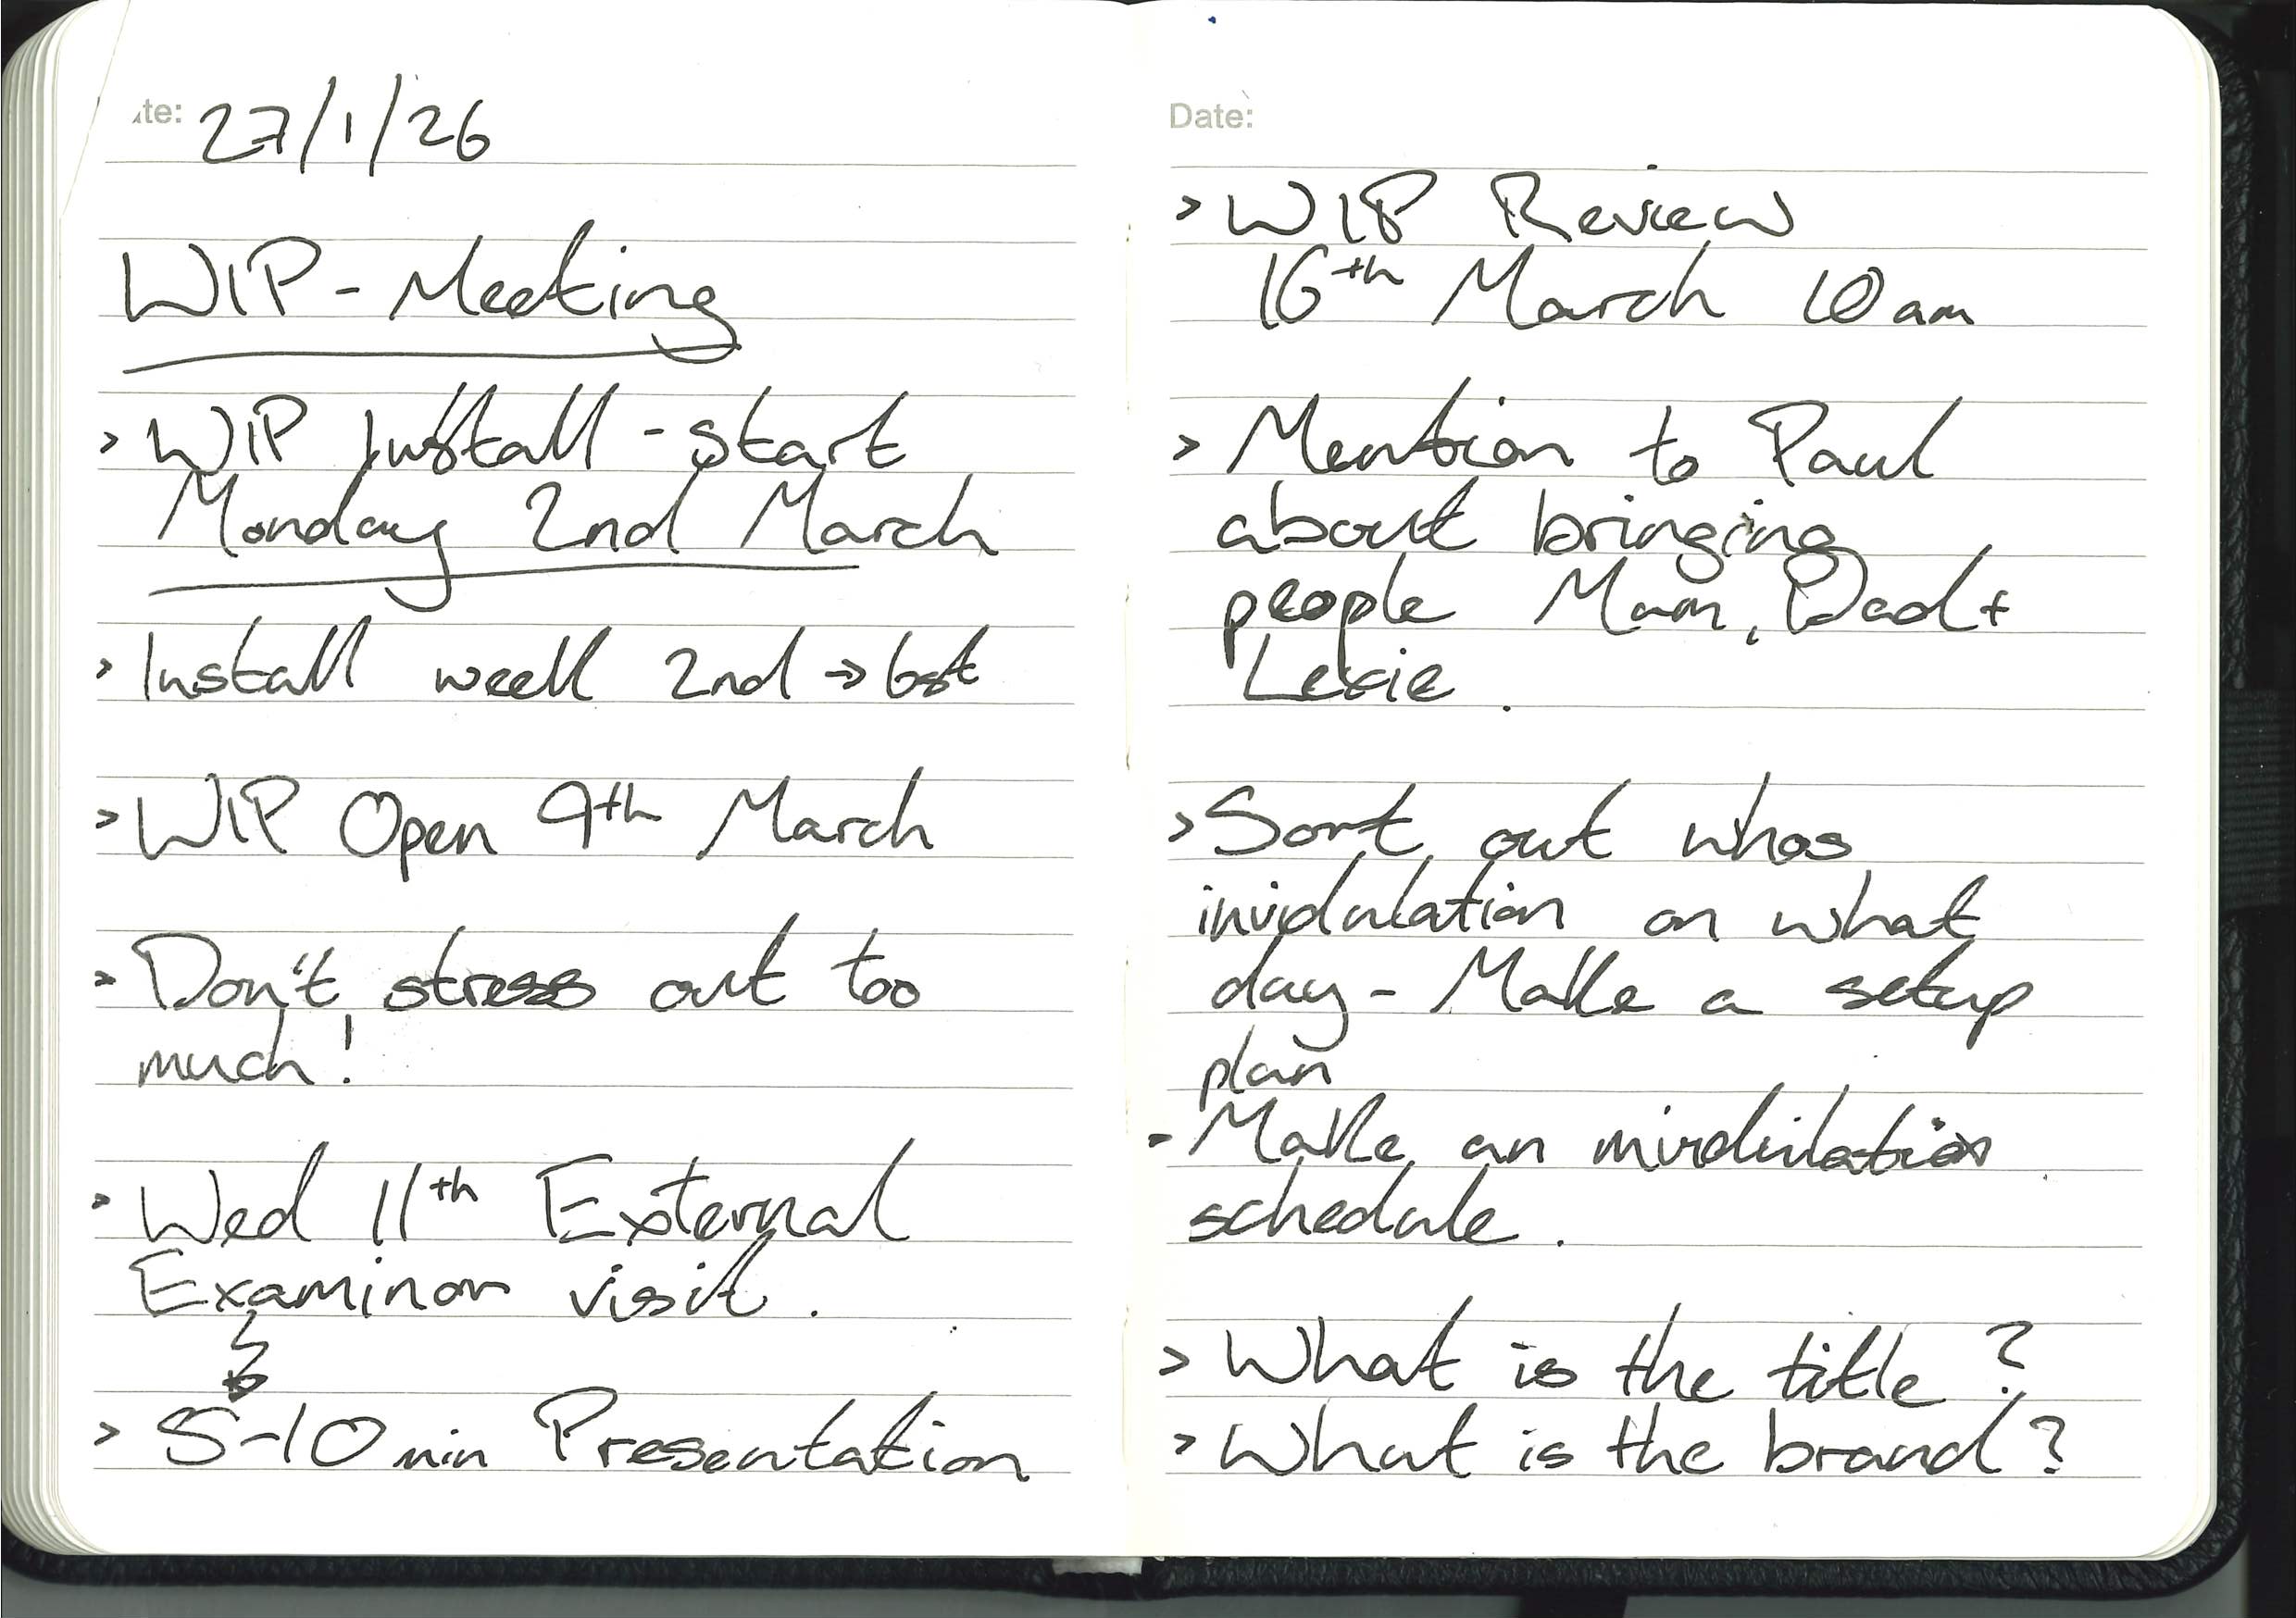 Date: 27/1/26
WIP - Meeting
> WIP Install - start
Monday 2nd March
> Install week 2nd → 6st
> WIP Open 9th March
> Don't stress out too
much!
> Wed 11th External
Examinor visit.
> 5-10 min Presentation
Date:
> WIP Review
16th March 10am
> Mention to Paul
about bringing
people Mam, Dad +
Lexie.
> Sort out whos
invidulation on what
day - Make a setup
plan
- Make an
schedule.
> What is the title?
> What is the brand?